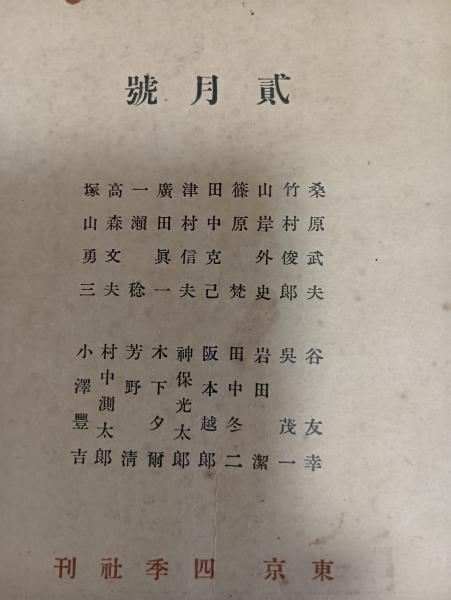 貳月號
桑原武夫
竹村俊郎
山岸外史
篠原梵
田中克己
津村信夫
廣田眞一
一瀨稔
高森文夫
塚山勇三
谷友幸
吳茂一
岩田潔
田中冬二
阪本越郎
神保光太郎
木下夕爾
芳野清
村中測太郎
小澤豐吉
東京四季社刊